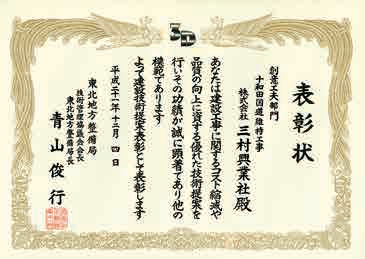 表彰状
創意工夫部門
十和田国道維持工事
株式会社 三村興業社 殿
あなたは建設工事に関するコスト縮減や
品質の向上に資する優れた技術提案を
行いその功績が誠に顕著であり他の
模範であります
よって建設技術提案表彰として表彰します
平成二十一年十二月 四日
東北地方整備局
技術管理協議会会長
東北地方整備局長
青山俊行